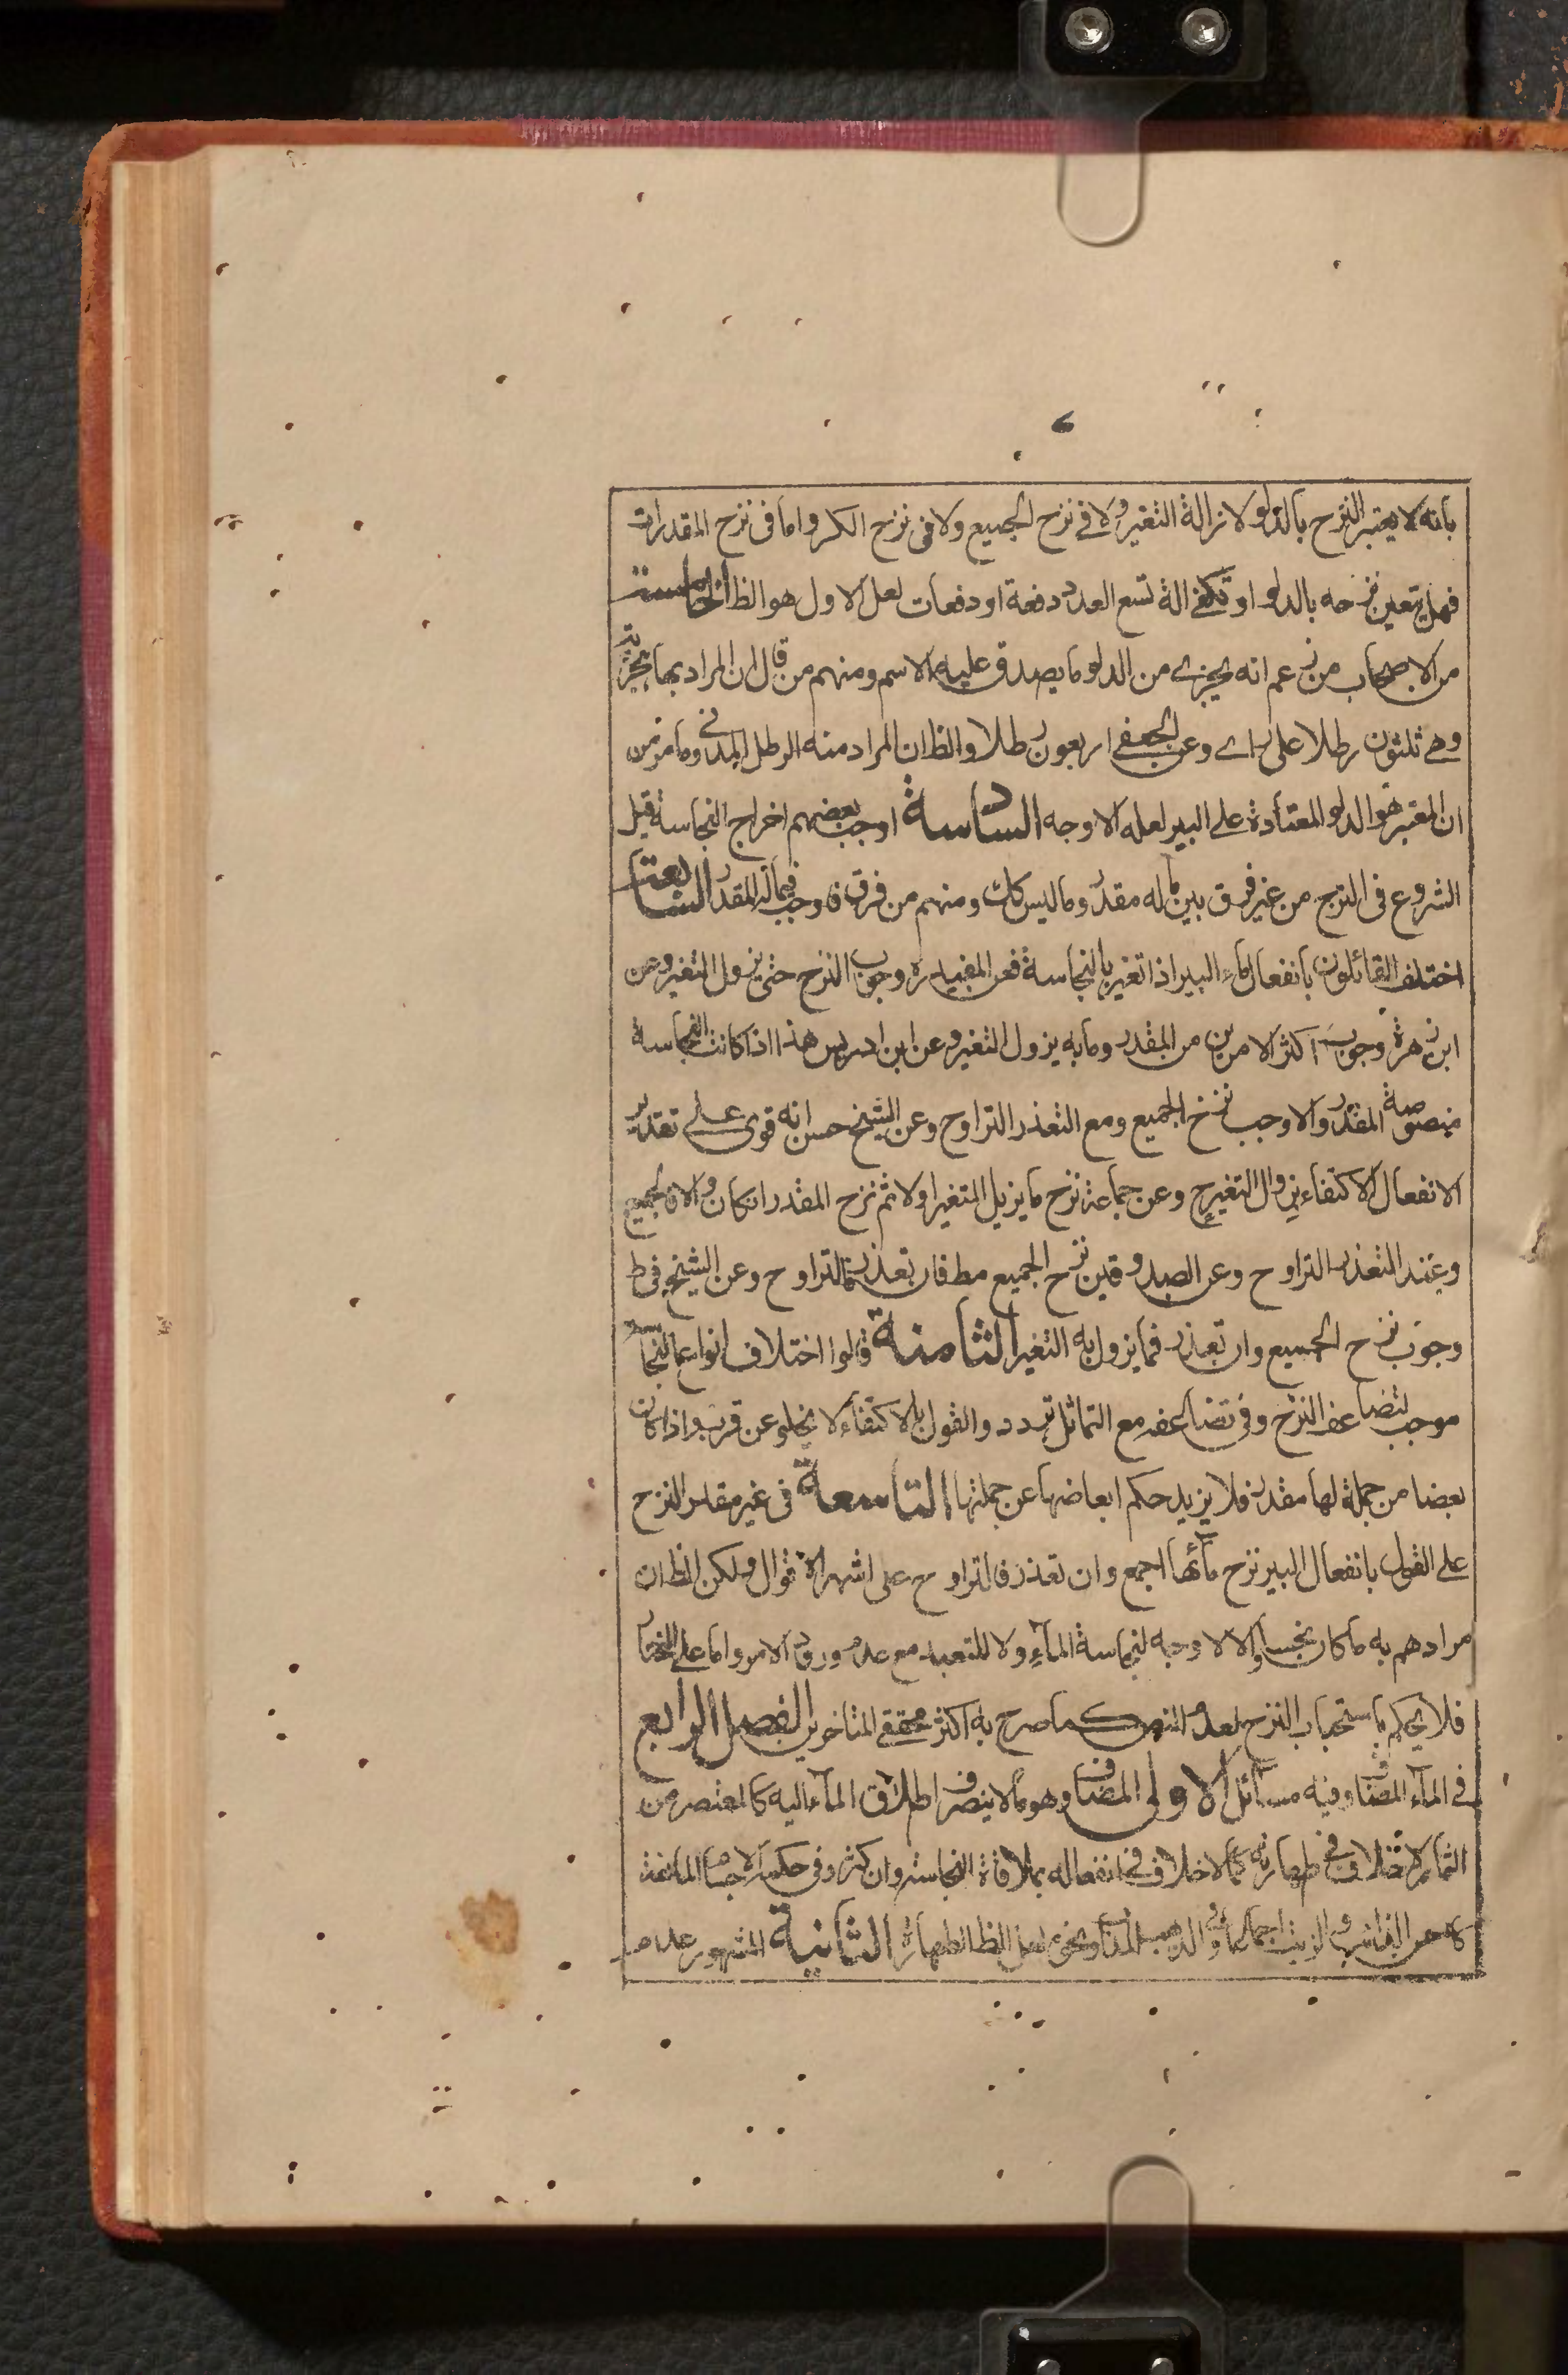 بانه لا يعتبر النزح بالدلو لا زالة التغير ولا فى نزح الجميع ولا فى نزح الكر واما فى نزح المقدرات
فهل يتعين نزحه بالدلو او تكفى الة تسع العدد دفعة او دفعات لعل الاول هو الظ الخامسة
من الاصحاب من زعم انه يجزى من الدلو ما يصدق عليه الاسم ومنهم من قال ان المراد بها هجرية
وهى ثلثون رطلا على راى وعن الجعفى اربعون رطلا والظ ان المراد منه الرطل المدنى وما مر من
ان المعتبر هو الدلو المعتادة على البير لعله الاوجه السادسة اوجب بعضهم اخراج النجاسة قبل
الشروع فى النزح من غير فرق بين ما له مقدر وما ليس كك ومنهم من فرق فاوجب فيما له المقدر السابعة
اختلف القائلون بانفعال ماء البير اذا تغير بالنجاسة فعن المفيد ره وجوب النزح حتى يزول التغير وعن
ابن زهرة وجوب اكثر الامرين من المقدر وما به يزول التغير وعن ابن ادريس هذا اذا كانت النجاسة
منصوصة المقدر والا وجب نزح الجميع ومع التعذر التراوح وعن الشيخ حسن انه قوى على تقدير
الانفعال الاكتفاء بزوال التغير ح وعن جماعة نزح ما يزيل المتغير اولا ثم نزح المقدر ان كان والا فالجميع
وعند التعذر التراوح وعن الصدوقين نزح الجميع مط فان تعذر فالتراوح وعن الشيخ فى ط
وجوب نزح الجميع وان تعذر فما يزول به التغير الثامنة قالوا اختلاف انواع النجاسة
موجب لتضاعف النزح وفى تضاعفه مع التماثل تردد والقول بالاكتفاء لا يخلو عن قرب واذا كان
بعضا من جملة لها مقدر فلا يزيد حكم ابعاضها عن جملتها التاسعة فى غير مقدر النزح
على القول بانفعال البير نزح مائها اجمع وان تعذر فالتراوح على اشهر الاقوال ولكن الظ ان
مرادهم به ما كان نجسا والا لا وجه لنجاسة الماء ولا للتعبد مع عدم ورود الامر واما على المختار
فلا يحكم باستحباب النزح لعدم النص كما صرح به اكثر محققى المتاخرين الفصل الرابع
فى الماء المضاف وفيه مسائل الاولى المضاف وهو ما لا ينصرف اطلاق الماء اليه كالمعتصر من
الثمار لا خلاف فى طهارته كما لا خلاف فى انفعاله بملاقاة النجاسة وان كثر وفى حكمه الاجسام المائعة
الثانية المشهور عدم